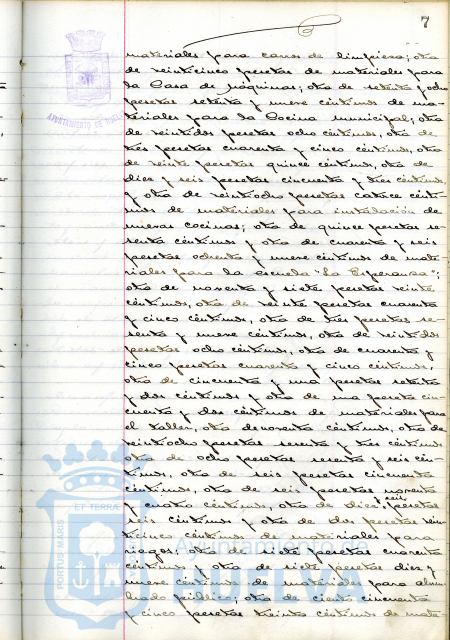 7
materiales para carros de limpieza; otra
de veinticinco pesetas de materiales para
la Casa de Máquinas; otra de setenta y ocho
pesetas setenta y nueve céntimos de ma-
teriales para la Cocina municipal; otra
de veintidos pesetas ocho céntimos, otra de
tres pesetas cuarenta y cinco céntimos, otra
de veinte pesetas quince céntimos, otra de
diez y seis pesetas cincuenta y tres céntimos
y otra de veintiocho pesetas catorce cénti-
mos de materiales para instalación de
nuevas cocinas; otra de quince pesetas se-
senta céntimos y otra de cuarenta y seis
pesetas ochenta y nueve céntimos de mate-
riales para la escuela "La Esperanza";
otra de noventa y siete pesetas veinte
céntimos, otra de veinte pesetas cuarenta
y cinco céntimos, otra de tres pesetas se-
senta y nueve céntimos, otra de veintidos
pesetas ocho céntimos, otra de cuarenta y
cinco pesetas cuarenta y cinco céntimos,
otra de cincuenta y una pesetas setenta
y dos céntimos y otra de una peseta cin-
cuenta y dos céntimos de materiales para
el taller, otra de noventa céntimos, otra de
veintiocho pesetas sesenta y tres céntimos
otra de ocho pesetas sesenta y seis cén-
timos, otra de seis pesetas cincuenta
céntimos, otra de seis pesetas noventa
y cuatro céntimos, otra de diez y seis pesetas
seis céntimos y otra de dos pesetas vein-
ticinco céntimos de materiales para
riegos; otra de siete pesetas cuarenta
céntimos y otra de siete pesetas diez y
nueve céntimos de materiales para alum-
brado público; otra de ciento cincuenta
y cinco pesetas treinta céntimos de mate-
AYUNTAMIENTO DE HUELVA
PORTUS MARIS ET TERRAE
Ayuntamiento de
HUELVA